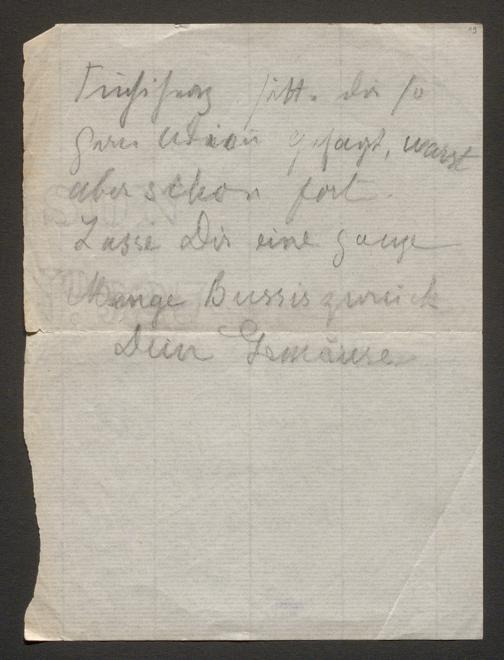 hätte dir so
gern Adieu gesagt, warst
aber schon fort.
Lasse Dir eine ganze
Menge Bussis zurück
Dein